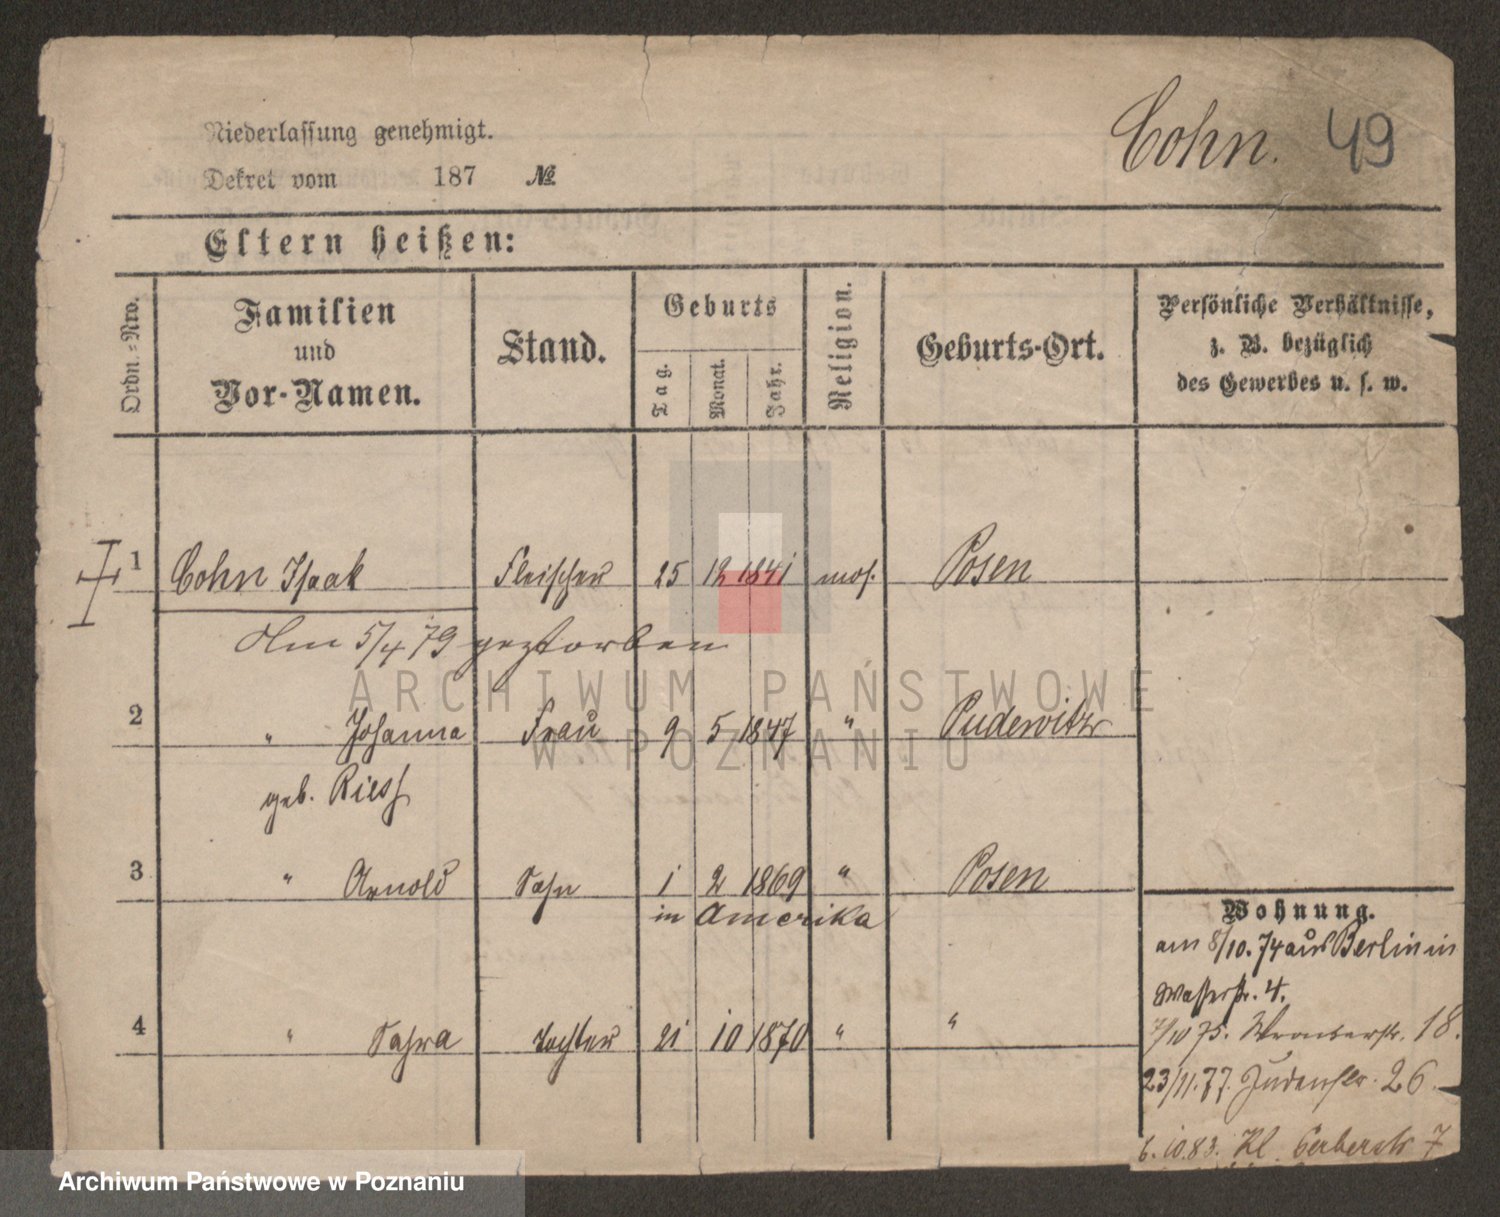 Niederlassung genehmigt.
Dekret vom 187 №
Cohn. 49
Eltern heißen:
Ordn.-Nro.
Familien
und
Vor-Namen.
Stand.
Geburts
Tag.
Monat.
Jahr.
Religion.
Geburts-Ort.
Persönliche Verhältnisse,
z. B. bezüglich
des Gewerbes u. s. w.
1 Cohn Isaak Fleischer 25 12 1841 mos. Posen
Am 5/4 79 gestorben
2 " Johanna Frau 9 5 1847 " Pudewitz
geb. Riess
3 " Arnold Sohn 1 2 1869 " Posen
in Amerika
4 " Sahra Tochter 21 10 1870 " "
Wohnung.
am 8/10. 74 aus Berlin in
Wasserstr. 4.
7/10 75. Wronkerstr. 18.
23/11. 77. Judenstr. 26.
6. 10. 83. Kl. Gerberstr 7
ARCHIWUM PAŃSTWOWE
W POZNANIU
Archiwum Państwowe w Poznaniu